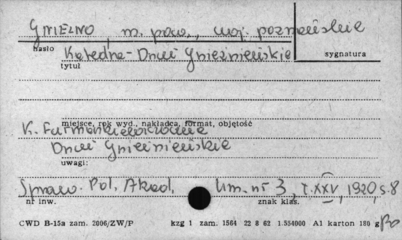 GNIEZNO, m. pow., woj. poznańskie
hasło
Katedra - Drzwi Gnieźnieńskie
tytuł
sygnatura
miejsce, rok wyd., nakładca, format, objętość
K. Furmankiewiczówna
Drzwi Gnieźnieńskie
uwagi:
Spraw. Pol. Akad. Um. nr 3, t. XXV, 1920, s. 8
nr inw.
znak klas.
CWD B-15a zam. 2006/ZW/P kzg 1 zam. 1564 22 8 62 1.354000 A1 karton 180 g